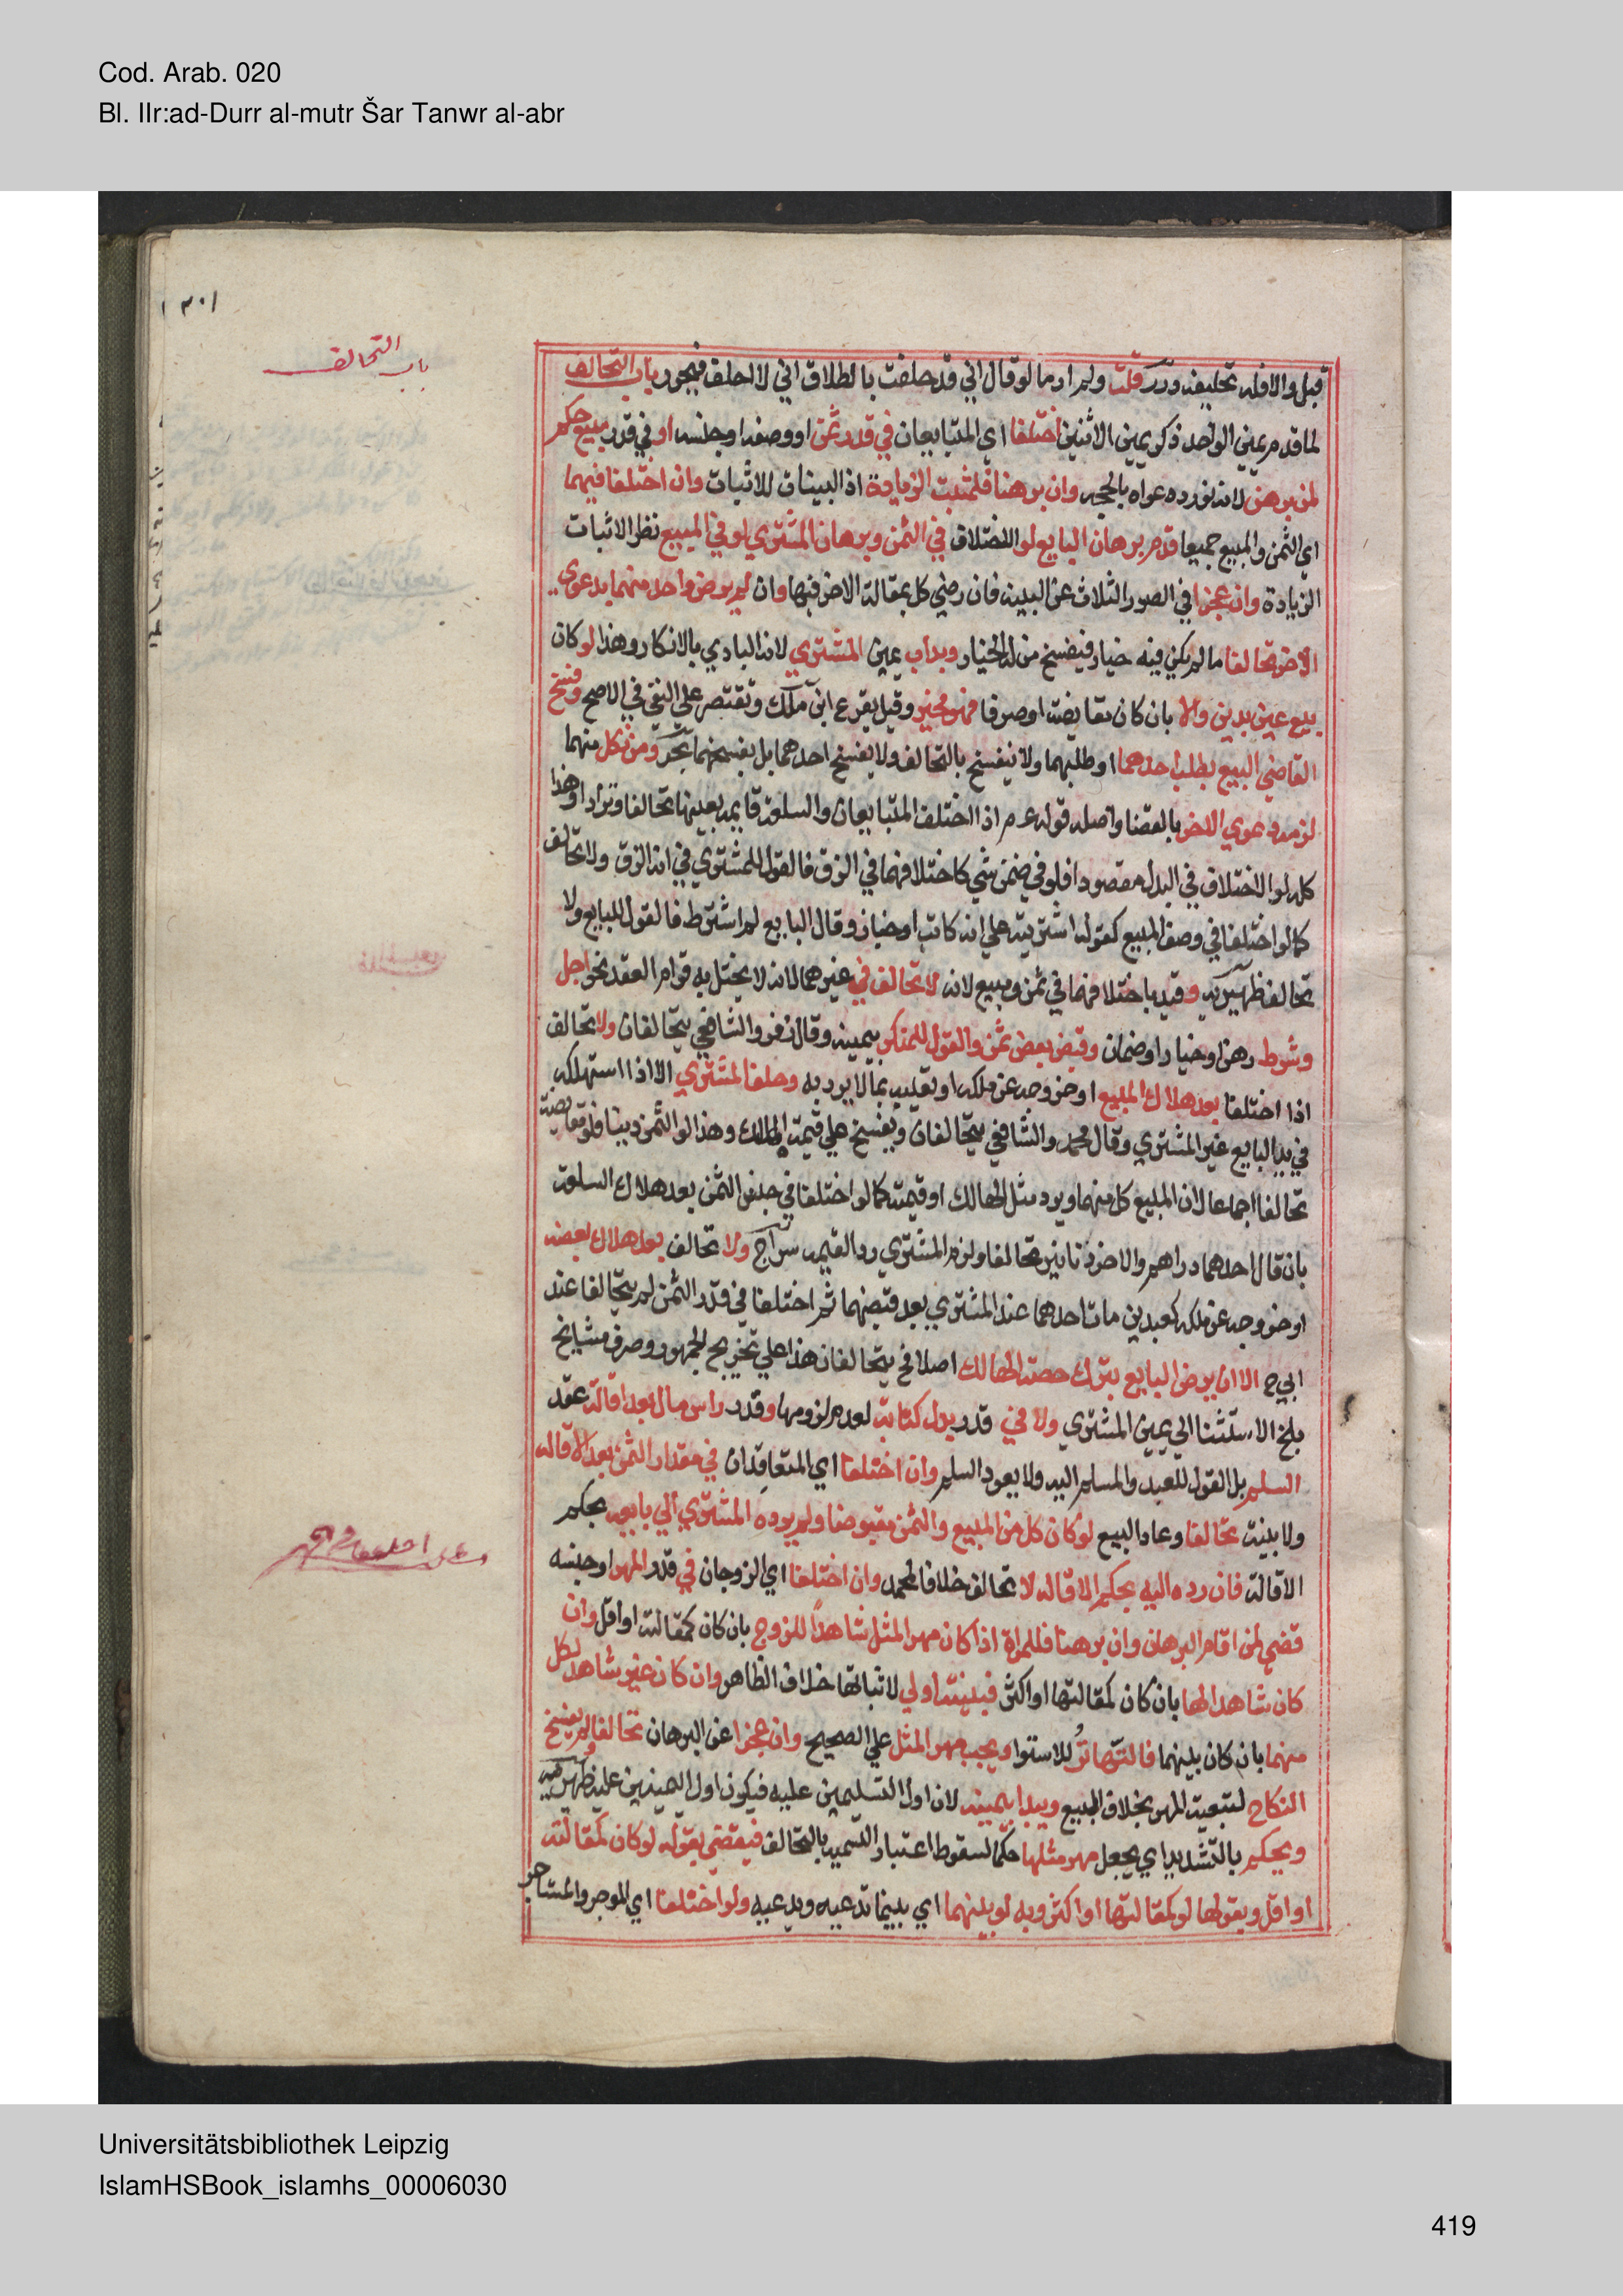 Cod. Arab. 020
Bl. IIr:ad-Durr al-mutr Šar Tanwr al-abr
باب التحالف
قبل والا فله تحليفه درر قلت ولم ار ما لو قال اني قد حلفت بالطلاق اني لا احلف فيحرر باب التحالف
لما قدم يمين الواحد ذكر يمين الاثنين اختلفا اي المتبايعان في قدر ثمن او وصفه او جنسه او في قدر مبيع حكم
لمن برهن لانه نور دعواه بالحجه وان برهنا فلمثبت الزيادة اذ البينات للاثبات وان اختلفا فيهما
اي الثمن والمبيع جميعا قدم برهان البايع لو الاختلاف في الثمن وبرهان المشتري لو في المبيع نظرا لاثبات
الزيادة وان عجزا في الصور الثلاث عن البينه فان رضي كل بمقالة الاخر فبها وان لم يرض واحد منهما بدعوي
الاخر تحالفا ما لم يكن فيه خيار فيفسخ من له الخيار وبدا ب يمين المشتري لانه البادي بالانكار وهذا لو كان
بيع عين بدين والا بان كان مقايضة او صرفا فهو مخير وقيل يقرع ابن ملك وتقتصر علي النفي في الاصح وفسخ
القاضي البيع بطلب احدهما او طلبهما ولا ينفسخ بالتحالف ولا يفسخ احدهما بل بفسخهما بحر ومن نكل منهما
لزمه دعوي الاخر بالقضا واصله قوله عم اذا اختلف المتبايعان والسلعة قايمه بعينها تحالفا وترادا وهذا
كله لو الاختلاف في البدل مقصودا فلو في ضمن شي كاختلافهما في الزق فالقول للمشتري في انه الزق ولا تحالف
كما لو اختلفا في وصف المبيع كقوله اشتريته علي انه كاتب او خباز وقال البايع لم اشترط فالقول للبايع ولا
تحالف ظهيريه وقيد باختلافهما في ثمن ومبيع لانه لا تحالف في غيرهما لانه لا يختل به قوام العقد نحو اجل
وشرط رهن او خيار او ضمان وقبض بعض ثمن والقول للمنكر بيمينه وقال زفر والشافعي يتحالفان ولا تحالف
اذا اختلفا بعد هلاك المبيع او خروجه عن ملكه او تعيبه بما لا يرد به وحلف المشتري الا اذا استهلكه
في يد البايع غير المشتري وقال محمد والشافعي يتحالفان ويفسخ علي قيمة الهالك وهذا لو الثمن دينا فلو مقايضة
تحالفا اجماعا لان المبيع كل منهما ويرد مثل الهالك او قيمته كما لو اختلفا في جنس الثمن بعد هلاك السلعة
بان قال احدهما دراهم والاخر دنانير تحالفا ولزم المشتري رد القيمه سراج ولا تحالف بعد هلاك بعضه
او خروجه عن ملكه كعبدين مات احدهما عند المشتري بعد قبضهما ثم اختلفا في قدر الثمن لم يتحالفا عند
ابي ح الا ان يرضي البايع بترك حصة الهالك اصلا فح يتحالفان هذا علي تخريج الجمهور وصرف مشايخ
بلخ الاستثنا الي يمين المشتري ولا في قدر بدل كتابة لعدم لزومها وقدر راس مال بعد اقالة عقد
السلم بل القول للعبد والمسلم اليه ولا يعود السلم وان اختلفا اي المتعاقدان في مقدار الثمن بعد الاقاله
ولا بينة تحالفا وعاد البيع لو كان كل من المبيع والثمن مقبوضا ولم يرده المشتري الي بايعه بحكم
الاقالة فان رده اليه بحكم الاقاله لا تحالف خلافا لمحمد وان اختلفا اي الزوجان في قدر المهر او جنسه
قضي لمن اقام البرهان وان برهنا فللمراة اذا كان مهر المثل شاهدا للزوج بان كان كمقالته او اقل وان
كان شاهدا لها بان كان كمقالتها او اكثر فبينته اولي لاثباتها خلاف الظاهر وان كان غير شاهد لكل
منهما بان كان بينهما فالتهاتر للاستوا ويجب مهر المثل علي الصحيح وان عجزا عن البرهان تحالفا ولم يفسخ
النكاح لتبعية المهر بخلاف البيع ويبدا بيمينه لان اول التسليمين عليه فيكون اول اليمينين عليه ظهيريه
ويحكم بالتشديد اي يجعل مهر مثلها حكما لسقوط اعتبار التسميه بالتحالف فيقضي بقوله لو كان كمقالته
او اقل وبقولها لو كمقالتها او اكثر وبه لو بينهما اي بينما تدعيه ويدعيه ولو اختلفا اي الموجر والمستاجر
Universitätsbibliothek Leipzig
IslamHSBook_islamhs_00006030
419